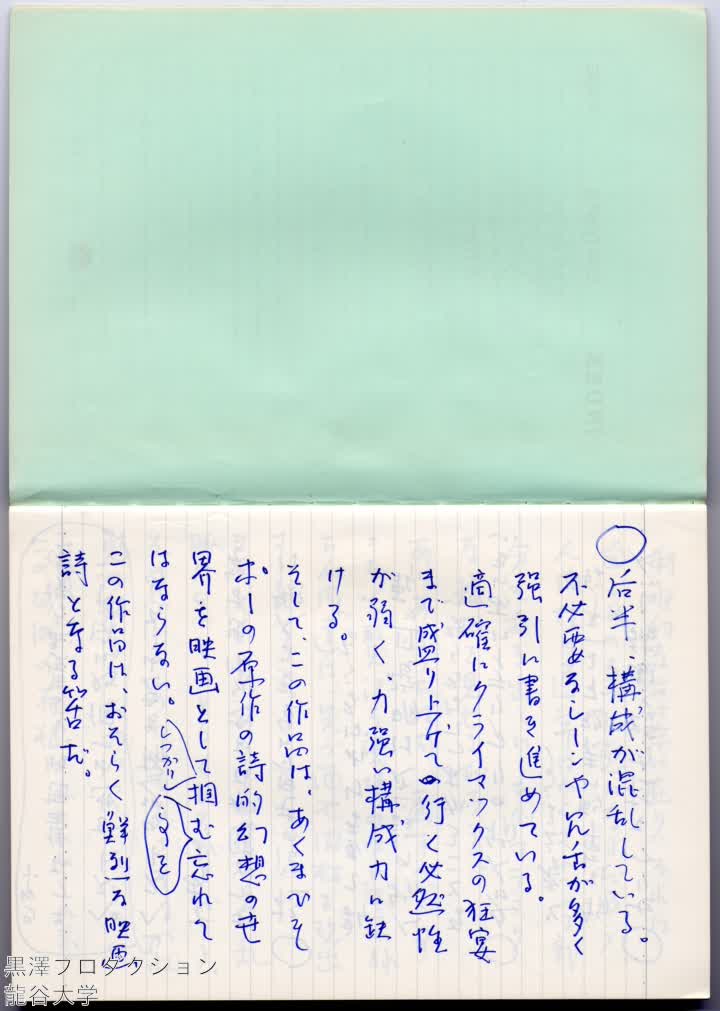 ○ 后半、構成が混乱している。
不必要なシーンや冗舌が多く
強引に書き進めている。
適確にクライマックスの狂宴
まで盛り上げて行く必然性
が弱く、力強い構成力に缺
ける。
そして、この作品は、あくまでも
ポーの原作の詩的幻想の世
界を映画として掴む忘れて
はならない。
しっかり
事を
この作品は、おそらく鮮烈な映画
詩となる筈だ。
黒澤プロダクション
龍谷大学